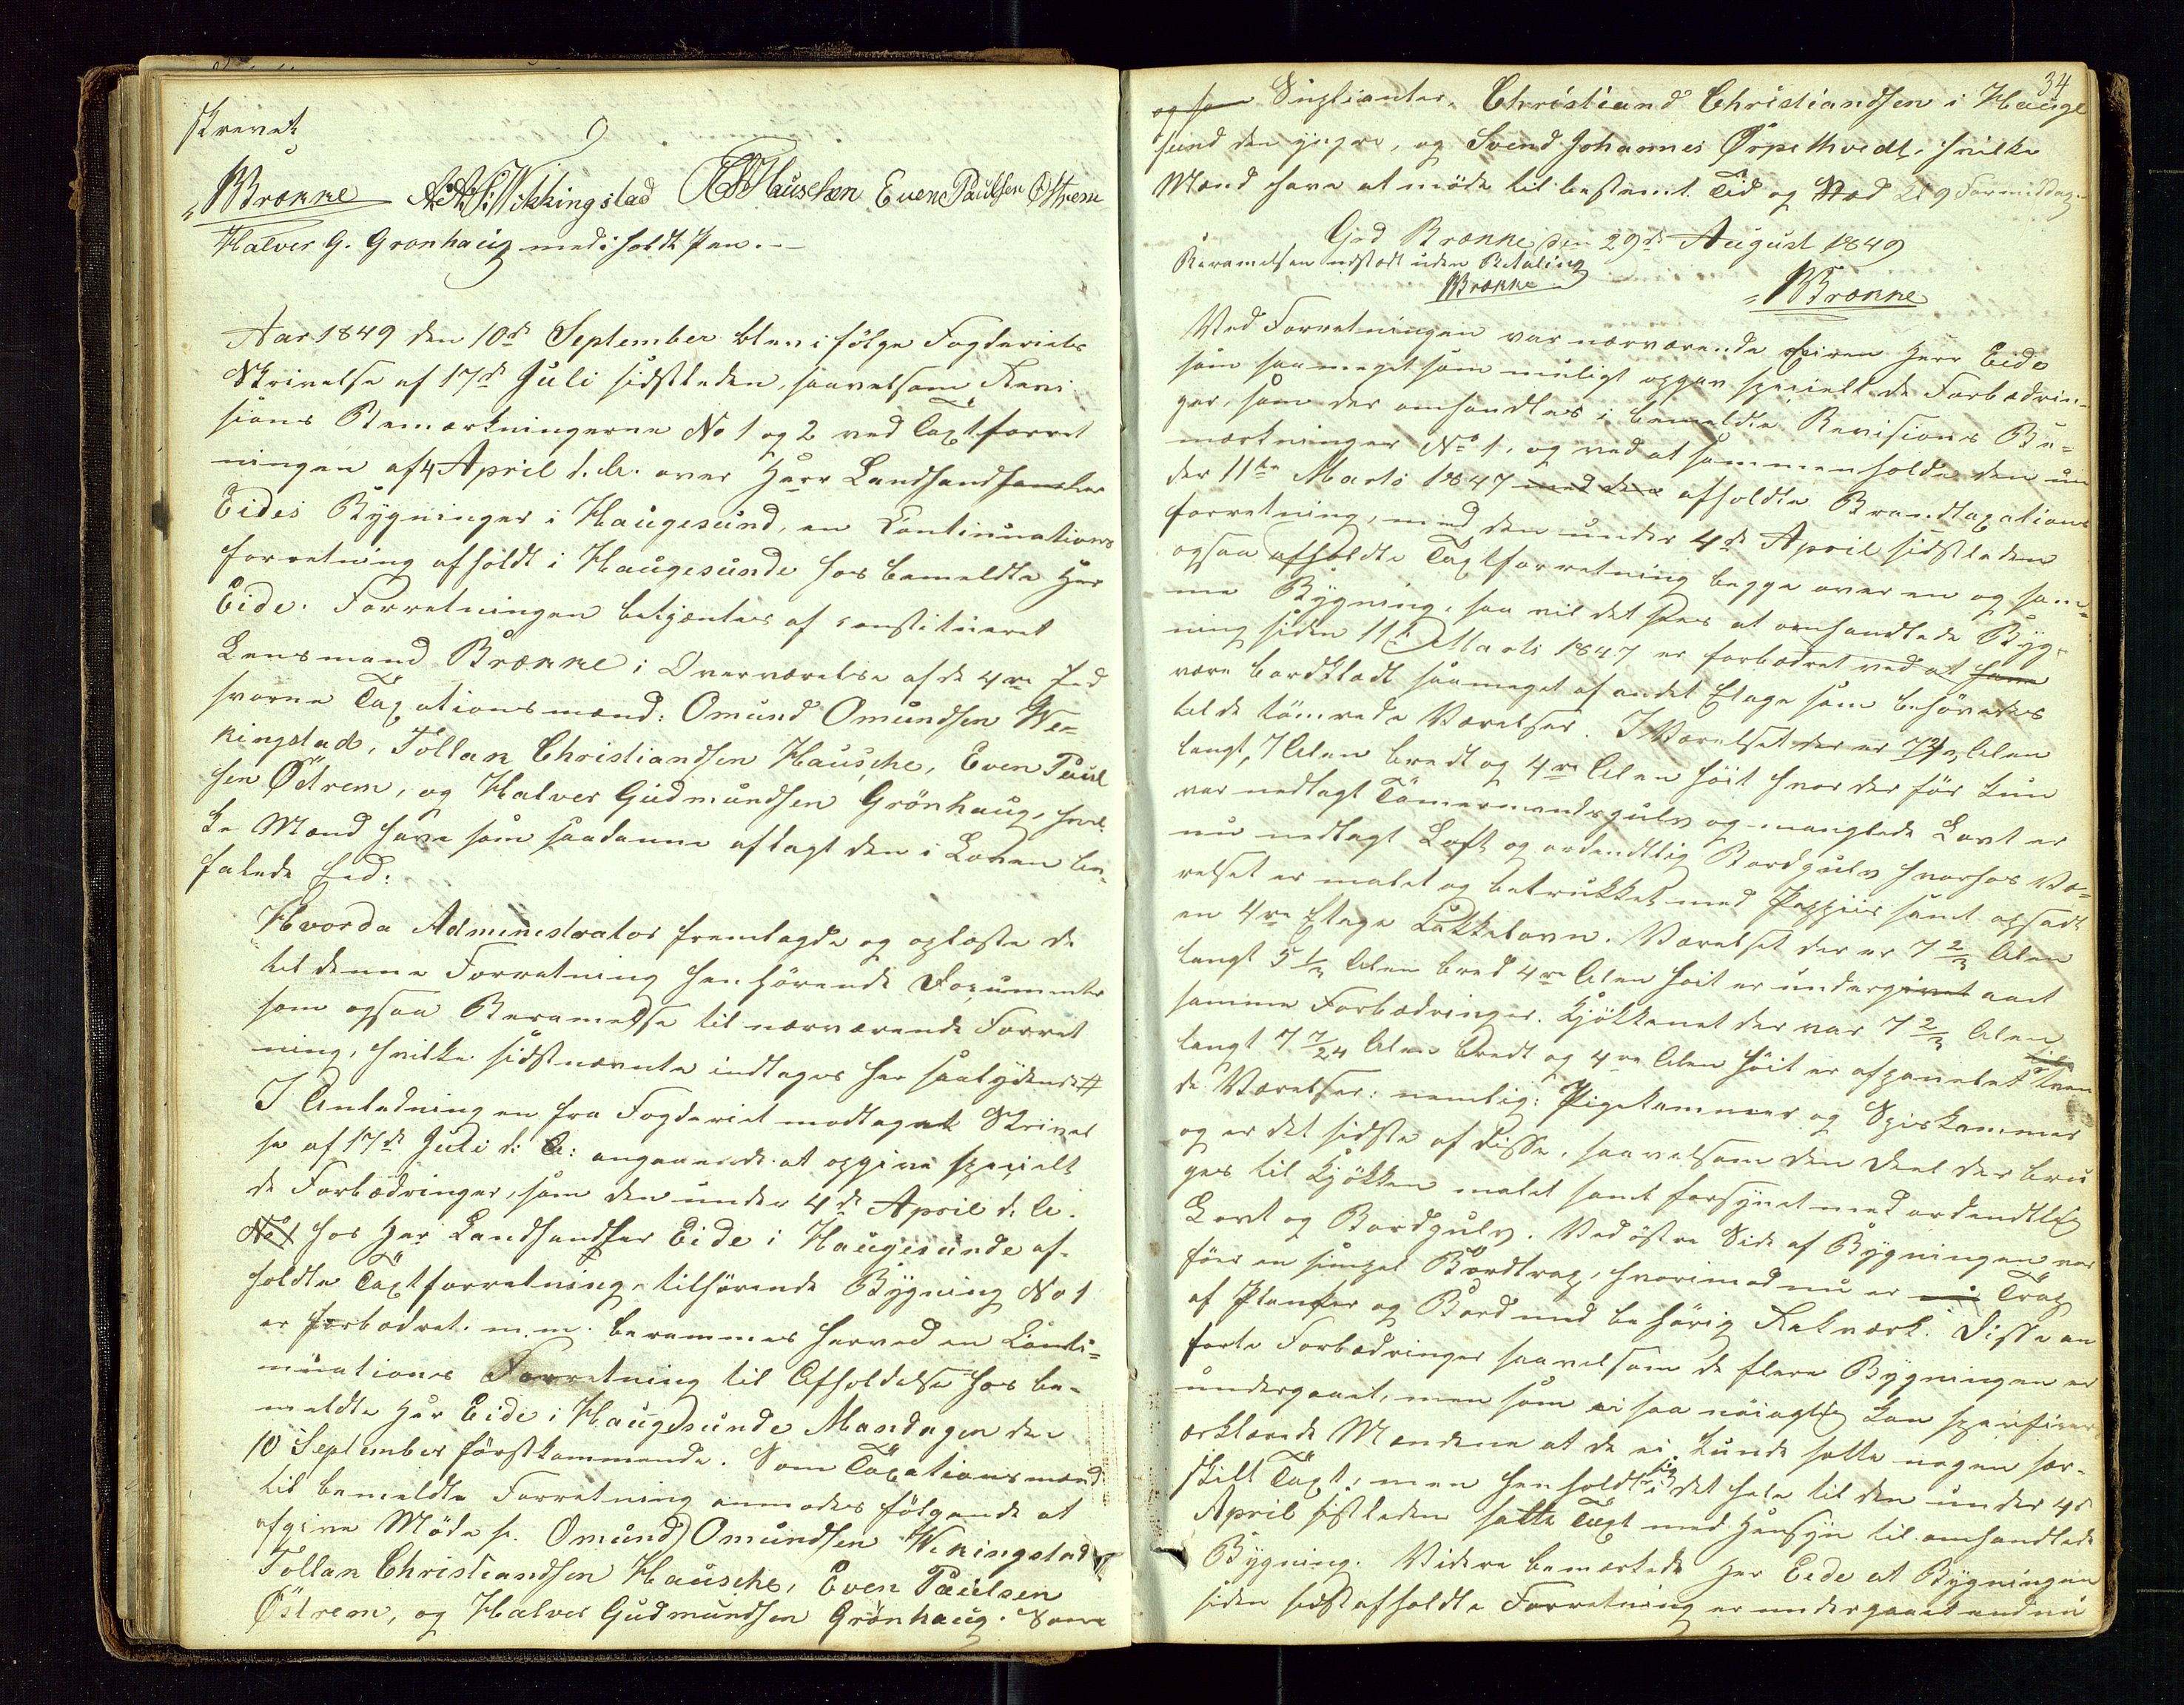 skrevet
BBrænne AAS. Vikkingstad TCHauschen Even Paulsen Østrem
Halver G. Grønhaug med i holdt Pen.
Aar 1849 den 10de September blev ifölge Fogderiets
Skrivelse af 17de Juli sidstleden, saavelsom Revi
sions Bemærkningerne No 1 og 2 ved Taxtforret
ningen af 4 April d. A. over Herr Landhandler
Eides Bygninger i Haugesund, en Continuations
forretning afholdt i Haugesunde hos bemeldte Her
Eide. Forretningen betjentes af constitueret
Lensmand Brænne i Overværelse af de 4re Ed
svorne Taxationsmænd: Omund Omundsen We-
kingstad, Tollak Christiandsen Hausche, Even Paul
sen Östrem, og Halver Gudmundsen Grönhaug, hvil-
ke Mænd have som saadanne aflagt den i Loven be-
falede Eed.
Hvorda Administrator fremlagde og oplæste de
til denne Forretning henhörende Documenter
som ogsaa Berammelse til nærværende Forret
ning, hvilke sidstnævnte indtages her saalydende #
I Anledning en fra Fogderiet modtaget Skrivel
se af 17de Juli d: A: angaaende at opgive specielt
de Forbedringer, som den under 4de April d. A.
No 1 hos Her Landhandler Eide i Haugesunde af-
holdte Taxtforretning tilhörende Bygning No 1
er forbedret. m.m. berammes herved en Conti-
nuations Forretning til Afholdelse hos be-
meldte Her Eide i Haugesunde Mandagen den
10 September förstkommende. Som Taxationsmænd
til bemeldte Forretning anmodes fölgende at
afgive Möde s. Omund Omundsen Wekingstad
Tollak Christiandsen Hausche, Even Paulsen
Östrem, og Halver Gudmundsen Grönhaug. Som
34
og som Suplianter, Christiand Christiandsen i Hauge
sund den yngre, og Svend Johannes Ørpethvedt, hvilke
Mænd have at möde til bestemt Tid og Sted Kl 9 Formiddag.
God Brænne den 29de August 1849
Berammelsen udstedt uden Betaling
BBrænne
BBrænne
Ved Forretningen var nærværende Eieren Herr Eide
som saameget som muligt opgav specielt de Forbedrin-
ger, som der omhandles i bemeldte Revisions Be-
mærkninger No 1. og ved at sammenholde den un
der 11te Marts 1847 med den afholdte Brandtaxations
forretning, med den under 4de April sidstleden
ogsaa afholdte Taxtforretning begge over en og sam-
me Bygning, saa vil det sees at omhandlede Byg-
ning siden 11te Marts 1847 er forbedret ved at have
være bordklædt saameget af andet Etage som behövedes
til de tömrede Værelser. I Værelset der er 7 2/3 Alen
langt, 7 Alen bredt og 4re Alen höit hvor der för kun
var nedlagt Tömermandsgulv og manglede Lovt er
nu nedlagt Loft og ordentlig Bordgulv hvorhos Væ-
relset er malet og betrukket med Pappiir samt opsadt
en 4re Etage Kakkelovn. Værelset der er 7 2/3 Alen
langt 5 1/3 Alen bred 4re Alen höit er undergivet aaet
samme Forbedringer. Kjökkenet der var 7 2/3 Alen
langt 7 7/24 Alen bredt og 4re Alen höit er afpanelet til tven
de Værelser: nemlig: Pigekammer og Spiskammer
og er det sidste af disse, saavelsom den Deel der bru
ges til Kjökken malet samt forsynet med ordentlig
Lovt og Bordgulv. Ved östre Side af Bygningen var
förr en simpel Bordtrap, hvorimod nu er en Trap
af Planker og Bord med behörig Rekværk. Disse an
förte Forbedringer saavelsom de flere Bygningen er
undergaaet, men som ei saa nöiagtig kan specificeres
erklærede Mændene at de ei kunde sætte nogen sær-
skilt Taxt, men henholdt sig i det hele til den under 4de
April sistleden satte Taxt med Hensyn til omhandlede
Bygning. Videre bemærkede Her Eide at Bygningen
siden sidst afholdte Forretning er undergaaet endnu